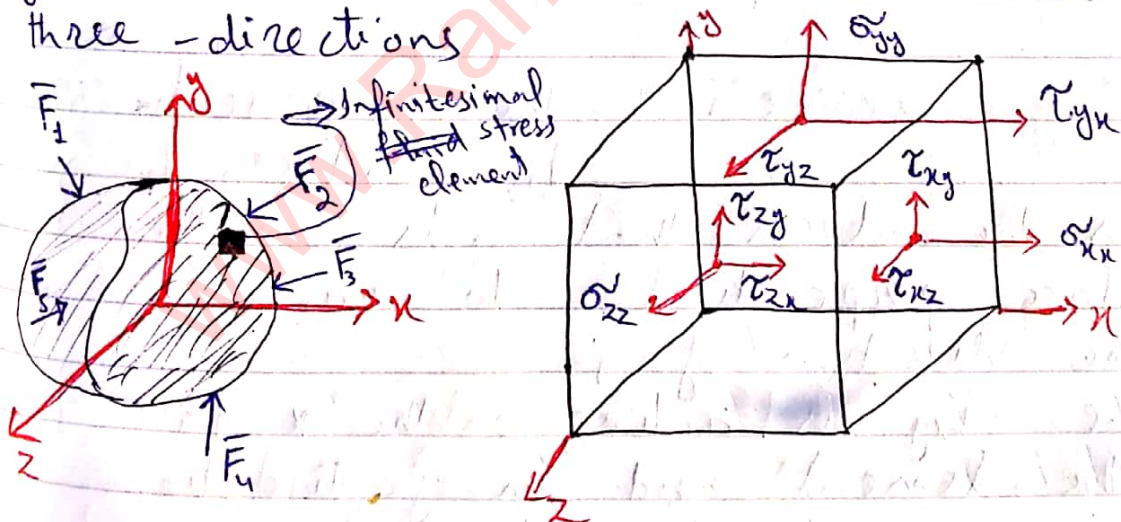 three - directions
y
F̅₁
Infinitesimal
fluid stress
element
F̅₂
F̅₃
F̅₅
x
z
F̅₄
y
σyy
τyx
τyz
τxy
τzy
σxx
τxz
σzz
τzx
x
z
www.Ran